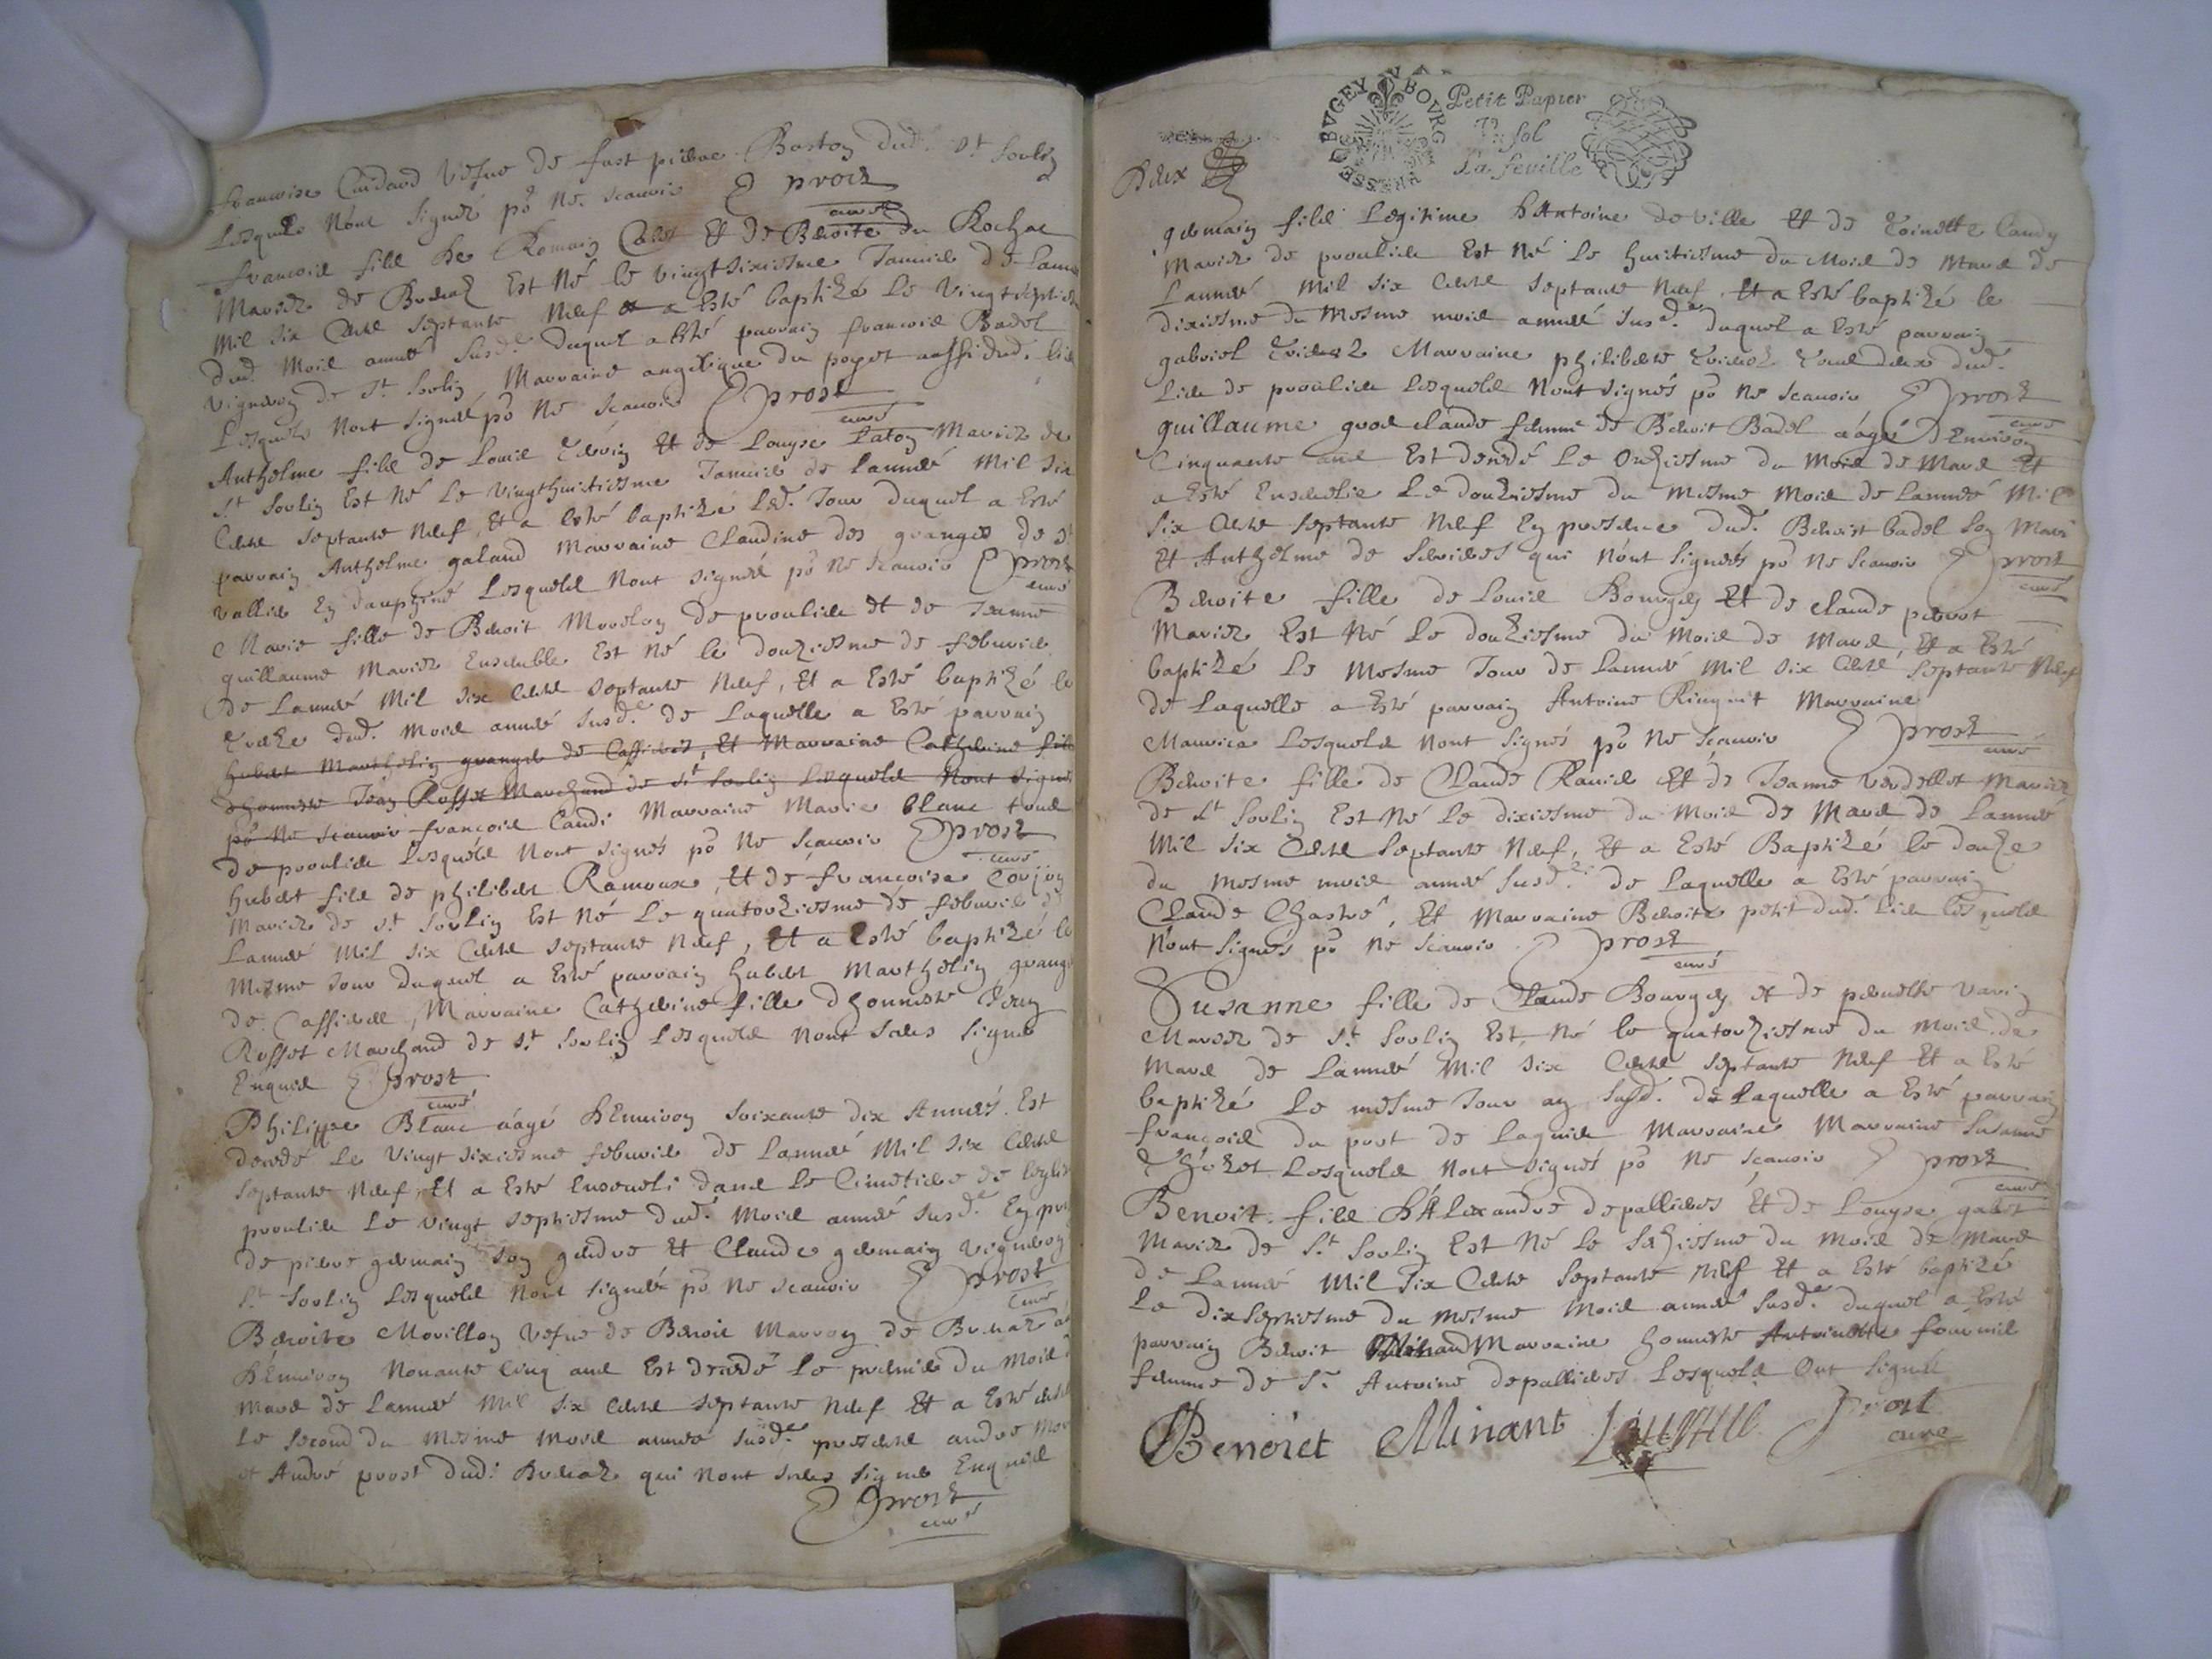 francoise Cuidard Vefue de fust pierre Baston dud. St Sorlin
Lesquels Nont signéz po Ne scauoir Prost
curé
francois filz de Romain Et de Benoite du Rochat
Mariez de Est Né le Vingtsixiesme Januier de Lannee
Mil six Cents septante Neuf et a Esté baptizé Le Vingtseptiesme
dud. Mois année susd. duquel a Esté parrain francois Badel
Vigneron de St Sorlin, Marraine angelique du poyet aussi dud. lieu
Lesquels Nont signéz po Ne scauoir Prost
curé
Anthelme filz de Louis Et de Louyse Laton Mariez de
St Sorlin Est Né Le Vingthuitiesme Januier de Lannee Mil six
Cents septante Neuf, Et a Esté baptizé Led. Jour duquel a Esté
parrain Anthelme galand Marraine Claudine des granges de St
vallier En dauphiné Lesquels Nont signéz po Ne scauoir Prost
curé
Marie fille de Benoit Morelon de proulieu et de Jeanne
guillaume Mariez Ensemble Est Né le douziesme de feburier
de Lannee Mil six Cents septante Neuf, Et a Esté baptizé le
Treize dud. Mois année susd.e de Laquelle a Esté parrain
hubert Marthelin granger de Et Marraine Catherine fille
dhonneste Jean Rosset Marchand de St Sorlin Lesquels Nont signé
po Ne scauoir francois Candi Marraine Marie blanc tous
de proulieu Lesquels Nont signés po Ne scauoir Prost
curé
hubert filz de philibert Ramoux, Et de francoise Coujon
Mariez de St Sorlin Est Né Le quatorziesme de feburier de
Lannee Mil six Cents septante Neuf, Et a Esté baptizé le
Mesme Jour duquel a Esté parrain hubert Marthelin granger
de Marraine Catherine fille dhonneste Jean
Rosset Marchand de St Sorlin Lesquels Nont sceu signer
Enquis Prost
curé
Philippe Blanc aagé denuiron soixante dix Années Est
decedé Le Vingt sixiesme feburier de Lannee Mil six Cents
septante Neuf, Et a Esté Enseueli dans Le Cimetiere de leglise
proulieu Le vingt septiesme dud. Mois année susd.e En
de pierre germain son gendre Et Claude germain Vigneron
St Sorlin Lesquels Nont signéz po Ne scauoir Prost
curé
Benoite Morillon Vefue de Benoit Marron de
denuiron Nonante cinq ans Est decedé Le premier du Mois
Mars de Lannee Mil six Cents septante Neuf Et a Esté
Le second du Mesme Mois année susd.e presents andre
et André prost dud. qui Nont sceu signer Enquis
Prost
curé
BRESSE BVGEY
BOVRG
Petit Papier
Vn sol
La feuille
germain filz Legitime dAntoine deville Et de Toinette Candy
Mariez de proulieu Est Né Le huitiesme du Mois de Mars de
Lannee Mil six Cents septante Neuf Et a Esté baptizé le
dixiesme du Mesme mois année susd.e duquel a Esté parrain
gabriel Marraine philiberte Tous deux dud.
Lieu de proulieu Lesquels Nont signés po Ne scauoir Prost
curé
guillaume claude femme de Benoit Badel aagé dEnuiron
Cinquante ans Est decedé Le Onziesme du Mois de Mars Et
a Esté Enseuelie Le douziesme du Mesme Mois de Lannee Mil
six Cents septante Neuf En presence dud. Benoit badel son Mari
Et Anthelme de qui Nont signés po Ne scauoir Prost
curé
Benoite fille de Louis Bourges Et de claude perrot
Mariez Est Né Le douziesme du Mois de Mars, Et a Esté
baptizé Le Mesme Jour de Lannee Mil six Cents septante Neuf
de Laquelle a Esté parrain Antoine Marraine
Mauvica Lesquels Nont signés po Ne scauoir Prost
curé
Benoite fille de Claude Rauier Et de Jeanne verdellet Mariez
de St Sorlin Est Né Le dixiesme du Mois de Mars de Lannee
Mil six Cents septante Neuf, Et a Esté Baptizé Le douze
du Mesme mois année susd.e de Laquelle a Esté parrain
Claude Chastre, Et Marraine Benoite petit dud. Lieu Lesquels
Nont signés po Ne scauoir Prost
curé
Susanne fille de Claude Bourges et de pernette
Mariez de St Sorlin Est Né Le quatorziesme du Mois de
Mars de Lannee Mil six Cents septante Neuf Et a Esté
baptizé Le mesme Jour an susd. de Laquelle a Esté parrain
francois du port de Lagnieu Marraine Marraine Susanne
Lesquels Nont signés po Ne scauoir Prost
curé
Benoit filz dAlexandre depallieres Et de Louyse
Mariez de St Sorlin Est Né Le seziesme du Mois de Mars
de Lannee Mil Six Cents septante Neuf Et a Esté baptizé
Le dixseptiesme du Mesme Mois année susd.e duquel a Esté
parrain Benoit Marraine honneste Antoinette fournier
femme de Sr Antoine depallieres Lesquels Ont signéz
Benoict Minant Prost
curé